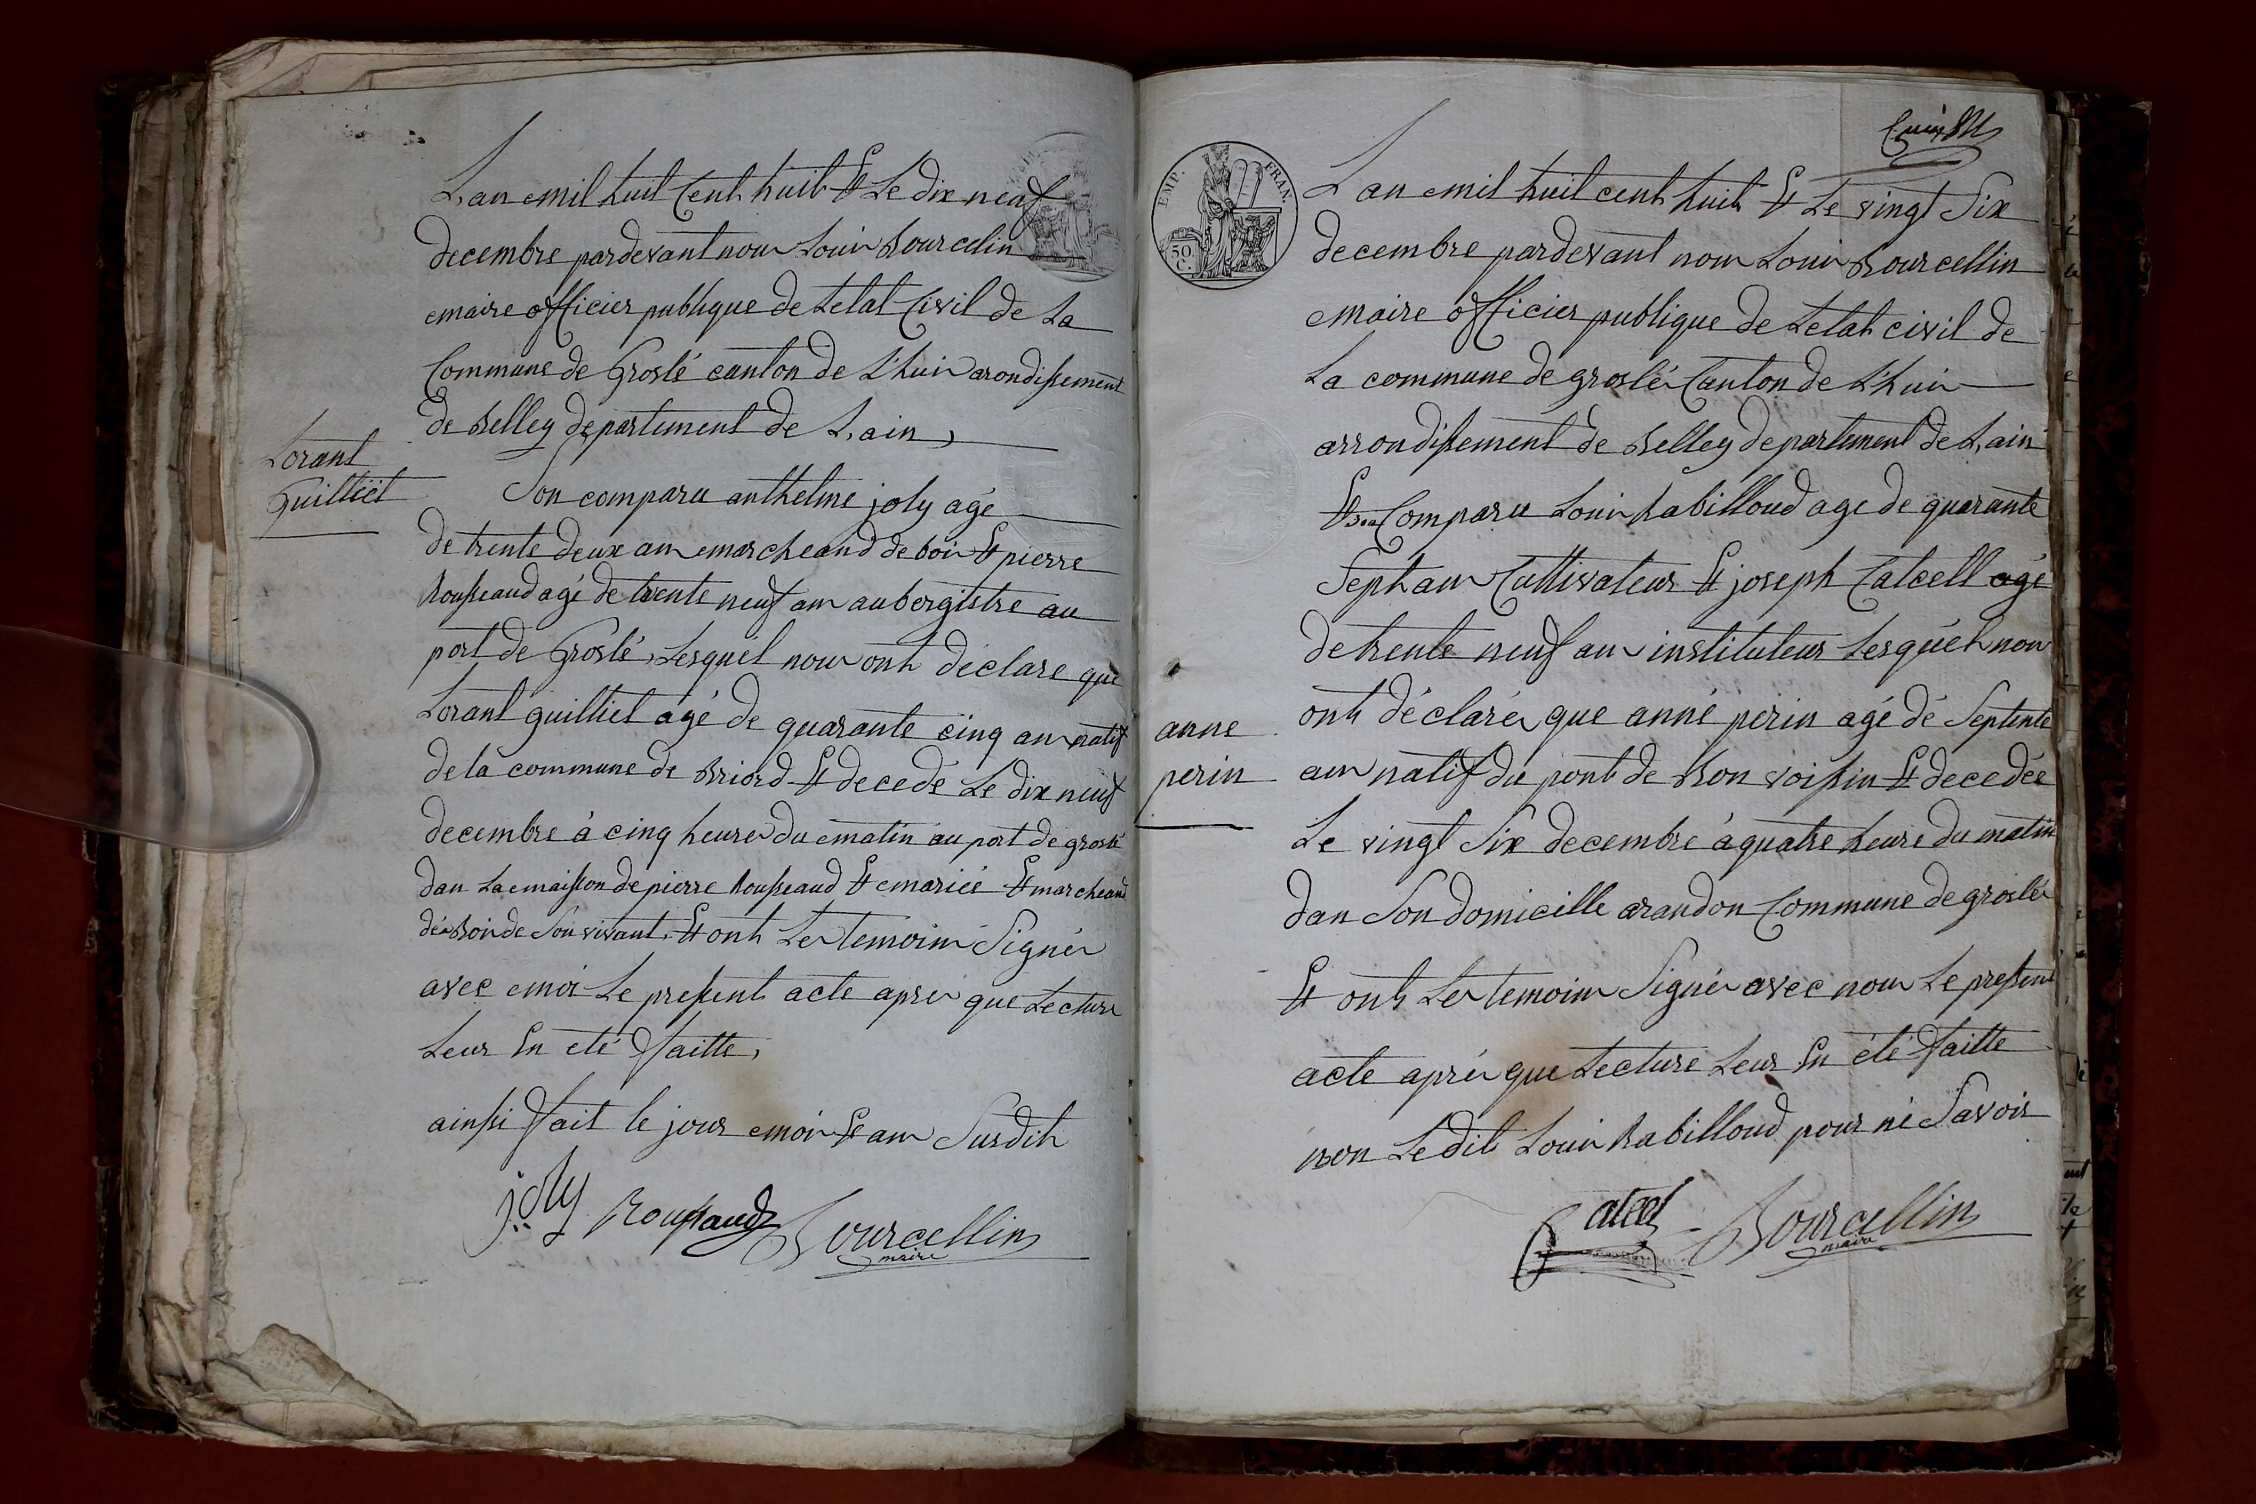 L,an mil huit Cent huit Et Le dix neuf
decembre pardevant nous Louis Bourcelin
maire officier publique de Letat Civil de La
Commune de Groslé canton de L'huis arondissement
de Belley departement de L,ain,
Lorant
Guilliet
Son comparu anthelme joly agé
de trente deux ans marcheand de bois Et pierre
Rousseaud agé de trente neuf ans aubergistre au
port de Groslé, Lesquel nous ont déclare que
Lorant guilliet agé de quarante cinq ans natif
de la commune de Briord Et decedé Le dix neuf
decembre à cinq heures du matin au port de groslé
dans La maison de pierre Rousseaud Et marié Et marcheand
de Bois de Son vivant, Et ont Les temoins Signés
avec moi Le present acte apres que Lecture
Leur En eté faitte,
ainssi fait le jour mois Et an Susdit
joly Roussaud Bourcellin
maire
EMP. FRAN.
50
C.
L an mil huit cent huit Et Le vingt Six
decembre pardevant nous Louis Bourcellin
maire officier publique de Letat civil de
La commune de groslé Canton de L'huis
arrondissement de Belley departement de L,ain
Et son Comparu Louis Rabilloud age de quarante
Sept ans Cultivateur Et joseph Catcell agé
de trente neuf ans instituteur Lesquel nous
ont déclaré que anne perin agé de Septente
anne
perin
ans natif du pont de Bonvoissin Et decedée
Le vingt Six decembre à quatre heure du matin
dans Son domicille arandon Commune de groslé
Et ont Les temoins Signés avec nous Le present
acte aprés que Lecture Leur En été faitte
non Ledit Louis Rabilloud pour ni Savoir
Catcel Bourcellin
maire